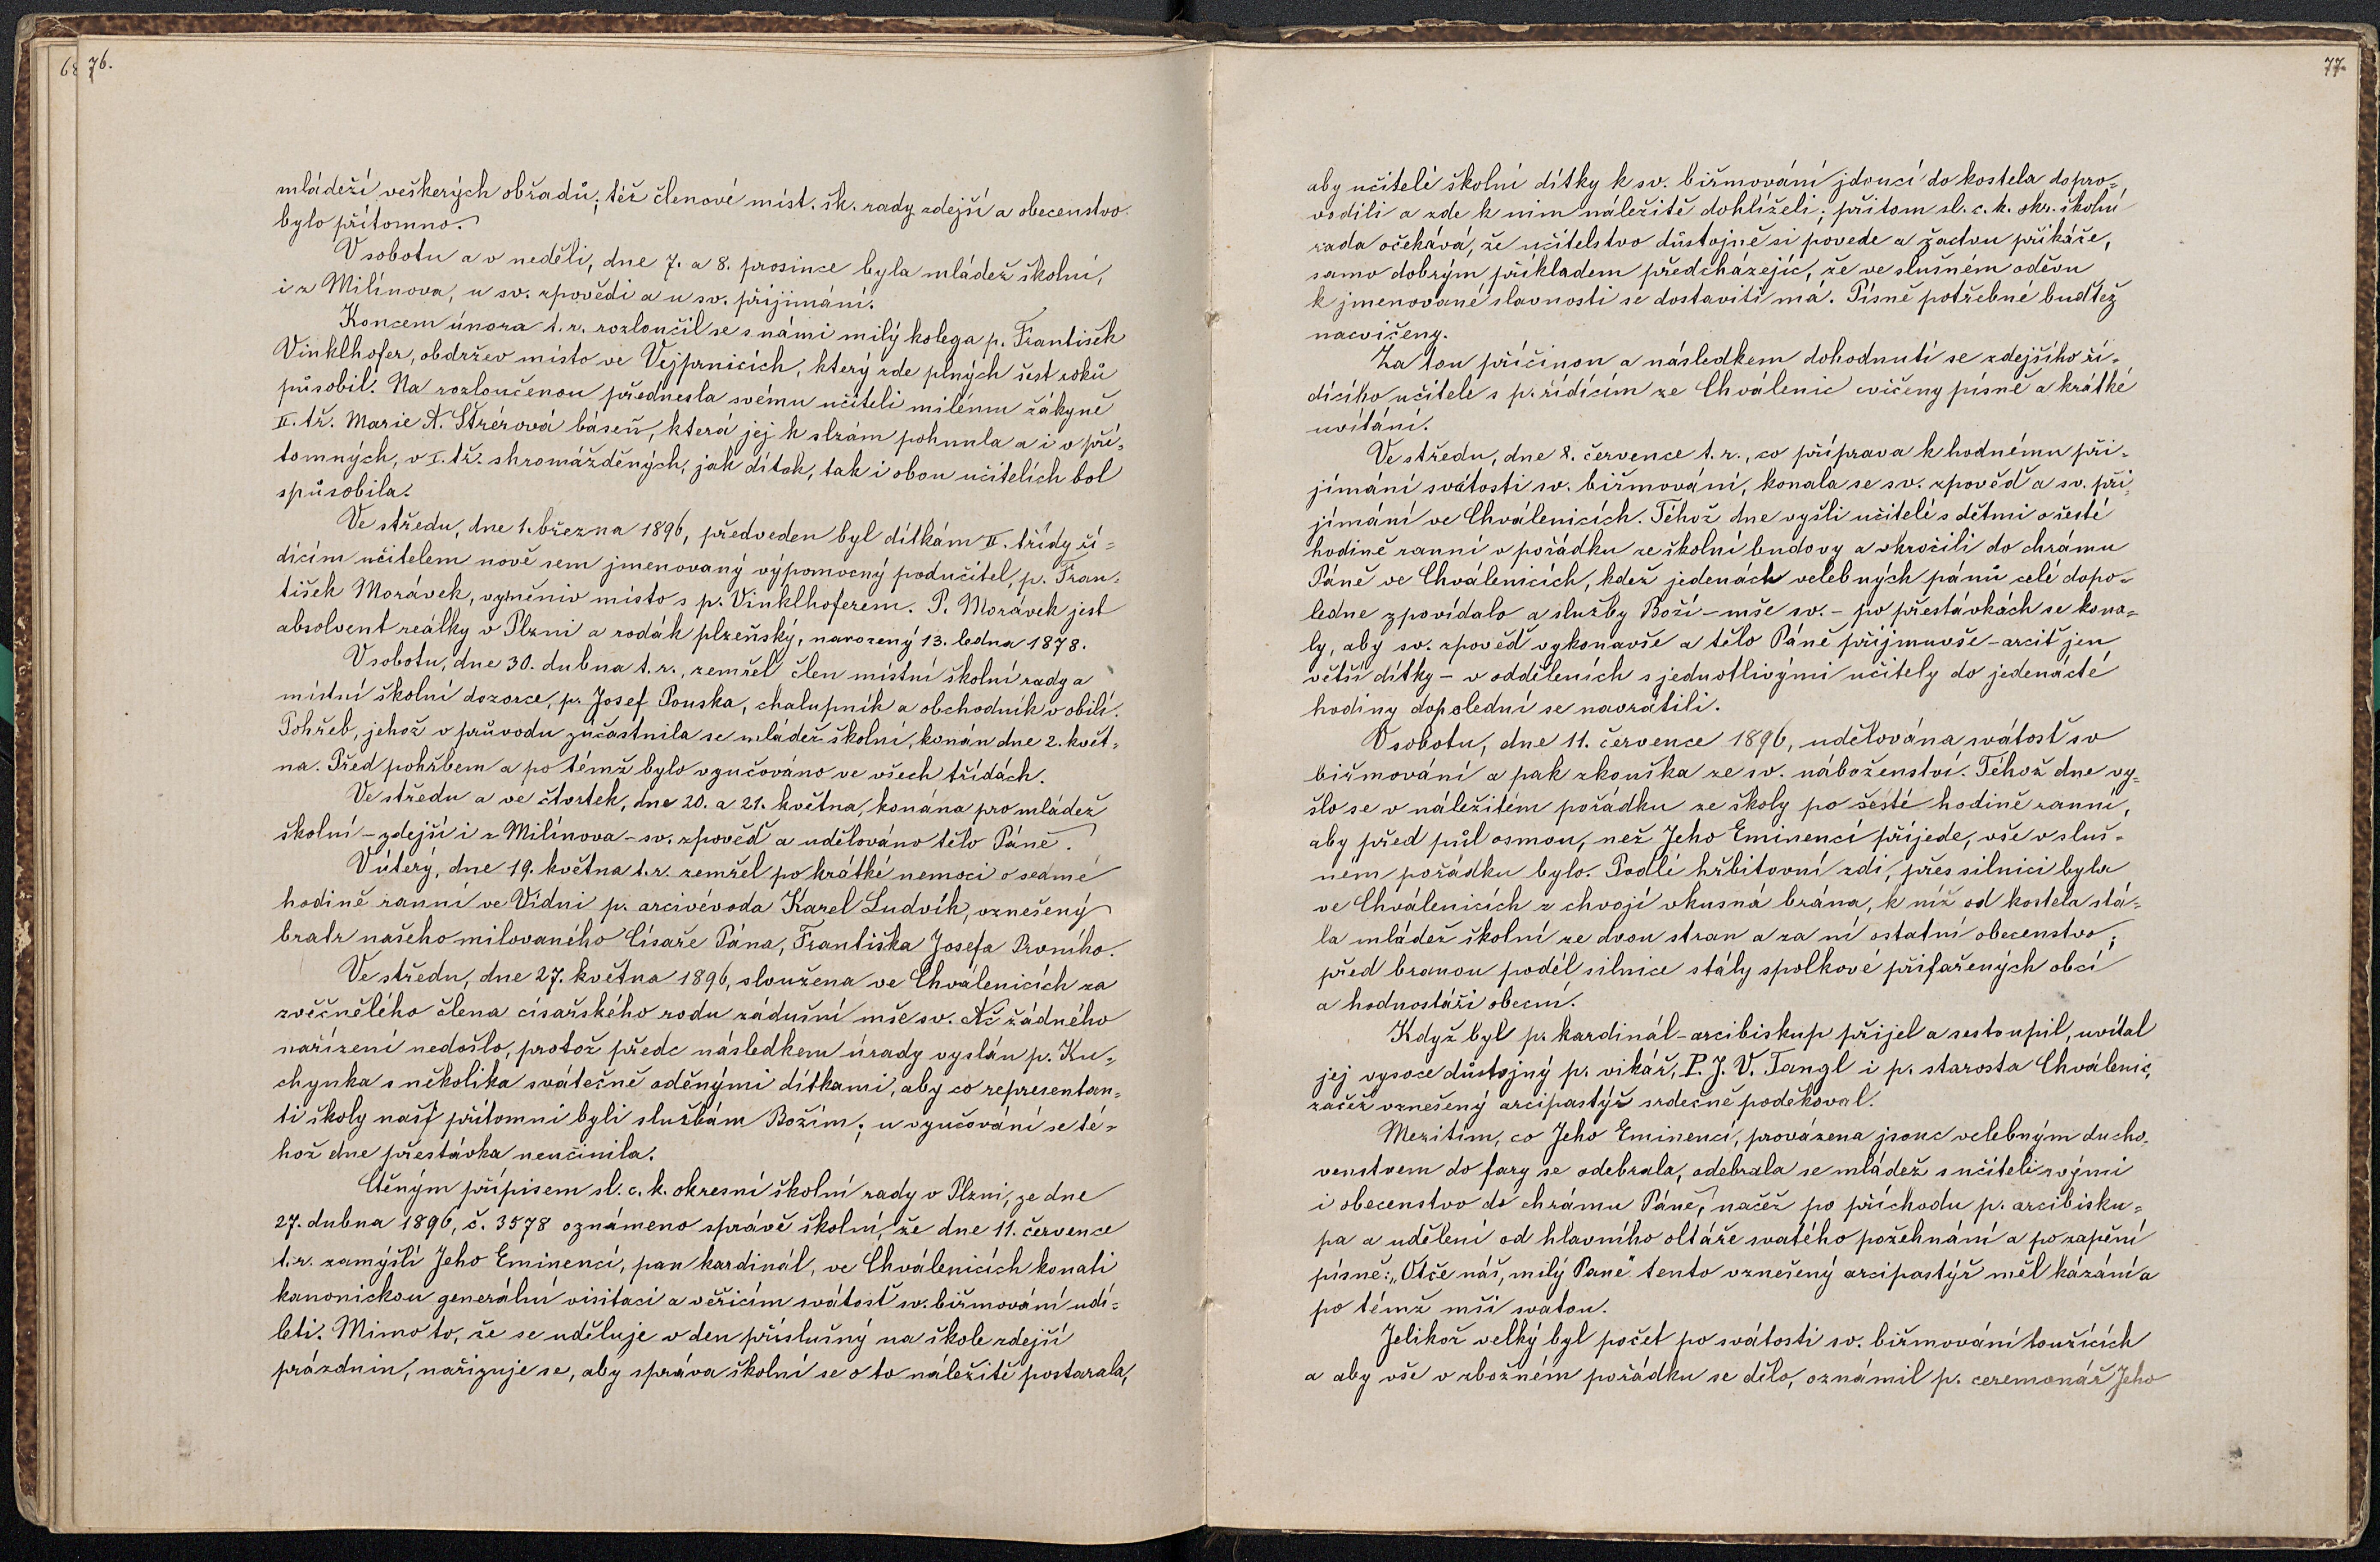 76.
mládeží veškerých obřadů; též členové míst. šk. rady zdejší a obecenstvo
bylo přítomno.
V sobotu a v neděli, dne 7. a 8. prosince byla mládež školní,
i z Milínova, u sv. zpovědi a u sv. přijímání.
Koncem února t. r. rozloučil se s námi milý kolega p. František
Vinklhofer, obdržev místo ve Vejprnicích, který zde plných šest roků
působil. Na rozloučenou přednesla svému učiteli milému žákyně
II. tř. Marie A. Štrérová báseň, která jej k slzám pohnula a i v pří-
tomných, v I. tř. shromážděných, jak dítek, tak i obou učitelích bol
spůsobila.
Ve středu, dne 1. března 1896, předveden byl dítkám II. třídy ří-
dícím učitelem nově sem jmenovaný výpomocný podučitel, p. Fran-
tišek Morávek, vyměniv místo s p. Vinklhoferem. P. Morávek jest
absolvent reálky v Plzni a rodák plzeňský, narozený 13. ledna 1878.
V sobotu, dne 30. dubna t. r., zemřel člen místní školní rady a
místní školní dozorce, p. Josef Pouska, chalupník a obchodník v obilí.
Pohřeb, jehož v průvodu zúčastnila se mládež školní, konán dne 2. květ-
na. Před pohřbem a po témž bylo vyučováno ve všech třídách.
Ve středu a ve čtvrtek, dne 20. a 21. května, konána pro mládež
školní - zdejší i z Milínova - sv. zpověď a udělováno tělo Páně.
V úterý, dne 19. května t. r. zemřel po krátké nemoci o sedmé
hodině ranní ve Vídni p. arcivévoda Karel Ludvík, vznešený
bratr našeho milovaného Císaře Pána, Františka Josefa Prvního.
Ve středu, dne 27. května 1896, sloužena ve Chválenicích za
zvěčnělého člena císařského rodu zádušní mše sv. Ač žádného
nařízení nedošlo, protož přede následkem úrady vyslán p. Ku-
chynka s několika svátečně oděnými dítkami, aby co representan-
ti školy naší přítomni byli službám Božím; u vyučování se té-
hož dne přestávka neučinila.
Ctěným přípisem sl. c. k. okresní školní rady v Plzni, ze dne
27. dubna 1896, č. 3578 oznámeno správě školní, že dne 11. července
t. r. zamýšlí Jeho Eminencí, pan kardinál, ve Chválenicích konati
kanonickou generální visitaci a věřícím svátosť sv. biřmování udí-
leti. Mimo to, že se uděluje v den příslušný na škole zdejší
prázdnin, nařizuje se, aby správa školní se o to náležitě postarala,
77.
aby učitelé školní dítky k sv. biřmování jdoucí do kostela dopro-
vodili a zde k nim náležitě dohlíželi; přitom sl. c. k. okr. školní
rada očekává, že učitelstvo důstojně si povede a žactvu přikáže,
samo dobrým příkladem předcházejíc, že ve slušném oděvu
k jmenované slavnosti se dostaviti má. Písně potřebné buďtež
nacvičeny.
Za tou příčinou a následkem dohodnutí se zdejšího ří-
dícího učitele s p. řídícím ze Chválenic cvičeny písně a krátké
uvítání.
Ve středu, dne 8. července t. r., co příprava k hodnému při-
jímání svátosti sv. biřmování, konala se sv. zpověď a sv. při-
jímání ve Chválenicích. Téhož dne vyšli učitelé s dětmi o šesté
hodině ranní v pořádku ze školní budovy a vkročili do chrámu
Páně ve Chválenicích, kdež jedenáct velebných pánů celé dopo-
ledne zpovídalo a služby Boží - mše sv. - po přestávkách se kona-
ly, aby sv. zpověď vykonavše a tělo Páně přijmuvše - arciť jen
větší dítky - v odděleních s jednotlivými učitely do jedenácté
hodiny dopolední se navrátili.
V sobotu, dne 11. července 1896, udělována svátosť sv
biřmování a pak zkouška ze sv. náboženství. Téhož dne vy-
šlo se v náležitém pořádku ze školy po šesté hodině ranní,
aby před půl osmou, než Jeho Eminencí přijede, vše v sluš-
ném pořádku bylo. Podlé hřbitovní zdi, přes silnici byla
ve Chválenicích z chvojí vkusná brána, k níž od kostela stá-
la mládež školní ze dvou stran a za ní ostatní obecenstvo;
před branou podél silnice stály spolkové přifařených obcí
a hodnostáři obecní.
Když byl p. kardinál-arcibiskup přijel a sestoupil, uvítal
jej vysoce důstojný p. vikář, P. J. V. Tangl i p. starosta Chválenic,
začež vznešený arcipastýř srdečně poděkoval.
Mezitím, co Jeho Eminencí, provázena jsouc velebným ducho-
venstvem do fary se odebrala, odebrala se mládež s učiteli svými
i obecenstvo do chrámu Páně, načež po příchodu p. arcibisku-
pa a udělení od hlavního oltáře svatého požehnání a po zapění
písně: „Otče náš, milý Pane" tento vznešený arcipastýř měl kázání a
po témž mši svatou.
Jelikož velký byl počet po svátosti sv. biřmování toužících
a aby vše v zbožném pořádku se dělo, oznámil p. ceremonář Jeho